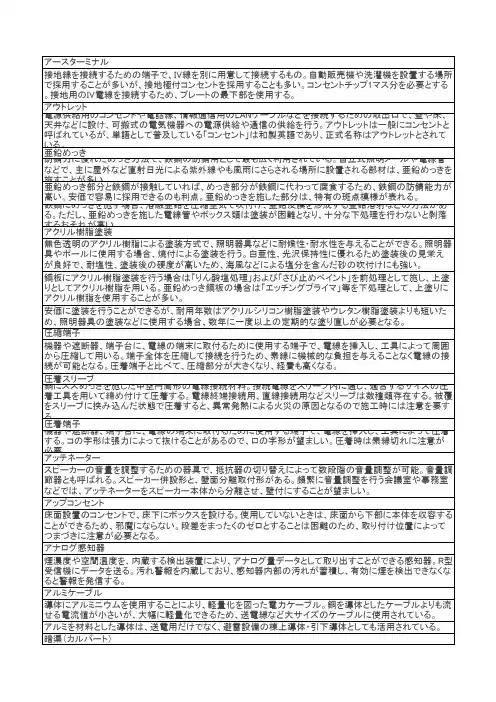 アースターミナル
接地線を接続するための端子で、IV線を別に用意して接続するもの。自動販売機や洗濯機を設置する場所
で採用することが多いが、接地極付コンセントを採用することも多い。コンセントチップ1マス分を必要とする
。接地用のIV電線を接続するため、プレートの最下部を使用する。
アウトレット
電源供給用のコンセントや電話線、情報通信用のLANケーブルなどを接続するための取出口で、壁や床、
天井などに設け、可搬式の電気機器への電源供給や通信の供給を行う。アウトレットは一般にコンセントと
呼ばれているが、単語として普及している「コンセント」は和製英語であり、正式名称はアウトレットとされて
いる。
亜鉛めっき
防錆力に優れためっき方法で、鉄鋼の防錆用として最も広く利用されている。自立式照明ポールや電線管
などで、主に屋外など直射日光による紫外線やも風雨にさらされる場所に設置される部材は、亜鉛めっきを
施すことが多い。
亜鉛めっき部分と鉄鋼が接触していれば、めっき部分が鉄鋼に代わって腐食するため、鉄鋼の防錆能力が
高い。安価で容易に採用できるのも利点。亜鉛めっきを施した部分は、特有の斑点模様が表れる。
鉄鋼にめっきを施す場合、溶融亜鉛を圧縮空気で吹付け、亜鉛皮膜を形成する亜鉛溶射などの方法があ
る。ただし、亜鉛めっきを施した電線管やボックス類は塗装が困難となり、十分な下処理を行わないと剥落
するおそれが高い。
アクリル樹脂塗装
無色透明のアクリル樹脂による塗装方式で、照明器具などに耐候性・耐水性を与えることができる。照明器
具やポールに使用する場合、焼付による塗装を行う。自亜性、光沢保持性に優れるため塗装後の見栄え
が良好で、耐塩性、塗装後の硬度が高いため、海風などによる塩分を含んだ砂の吹付けにも強い。
鋼板にアクリル樹脂塗装を行う場合は「りん酸塩処理」および「さび止めペイント」を前処理として施し、上塗
りとしてアクリル樹脂を用いる。亜鉛めっき鋼板の場合は「エッチングプライマ」等を下処理として、上塗りに
アクリル樹脂を使用することが多い。
安価に塗装を行うことができるが、耐用年数はアクリルシリコン樹脂塗装やウレタン樹脂塗装よりも短いた
め、照明器具の塗装などに使用する場合、数年に一度以上の定期的な塗り直しが必要となる。
圧縮端子
機器や遮断器、端子台に、電線の端末に取付るために使用する端子で、電線を挿入し、工具によって周囲
から圧縮して用いる。端子全体を圧縮して接続を行うため、素線に機械的な負担を与えることなく電線の接
続が可能となる。圧着端子と比べて、圧縮部分が大きくなり、経費も高くなる。
圧着スリーブ
銅にスズめっきを施した中空円筒形の電線接続材料。接続電線をスリーブ内に通し、適合するサイズの圧
着工具を用いて締め付けて圧着する。電線終端接続用、直線接続用などスリーブは数種類存在する。被覆
をスリーブに挟み込んだ状態で圧着すると、異常発熱による火災の原因となるので施工時には注意を要す
る。
圧着端子
機器や遮断器、端子台に、電線の端末に取付るために使用する端子で、電線を挿入し、工具によって圧着
する。コの字形は張力によって抜けることがあるので、ロの字形が望ましい。圧着時は素線切れに注意が
必要。
アッテネーター
スピーカーの音量を調整するための器具で、抵抗器の切り替えによって数段階の音量調整が可能。音量調
節器とも呼ばれる。スピーカー併設形と、壁面分離取付形がある。頻繁に音量調整を行う会議室や事務室
などでは、アッテネーターをスピーカー本体から分離させ、壁付にすることが望ましい。
アップコンセント
床面設置のコンセントで、床下にボックスを設ける。使用していないときは、床面から下部に本体を収容する
ことができるため、邪魔にならない。段差をまったくのゼロとすることは困難のため、取り付け位置によって
つまづきに注意が必要となる。
アナログ感知器
煙濃度や空間温度を、内蔵する検出装置により、アナログ量データとして取り出すことができる感知器。R型
受信機にデータを送る。汚れ警報を内蔵しており、感知器内部の汚れが蓄積し、有効に煙を検出できなくな
ると警報を発信する。
アルミケーブル
導体にアルミニウムを使用することにより、軽量化を図った電力ケーブル。銅を導体としたケーブルよりも流
せる電流値が小さいが、大幅に軽量化できるため、送電線など大サイズのケーブルに使用されている。
アルミを材料とした導体は、送電用だけでなく、避雷設備の棟上導体・引下導体としても活用されている。
暗渠（カルバート）